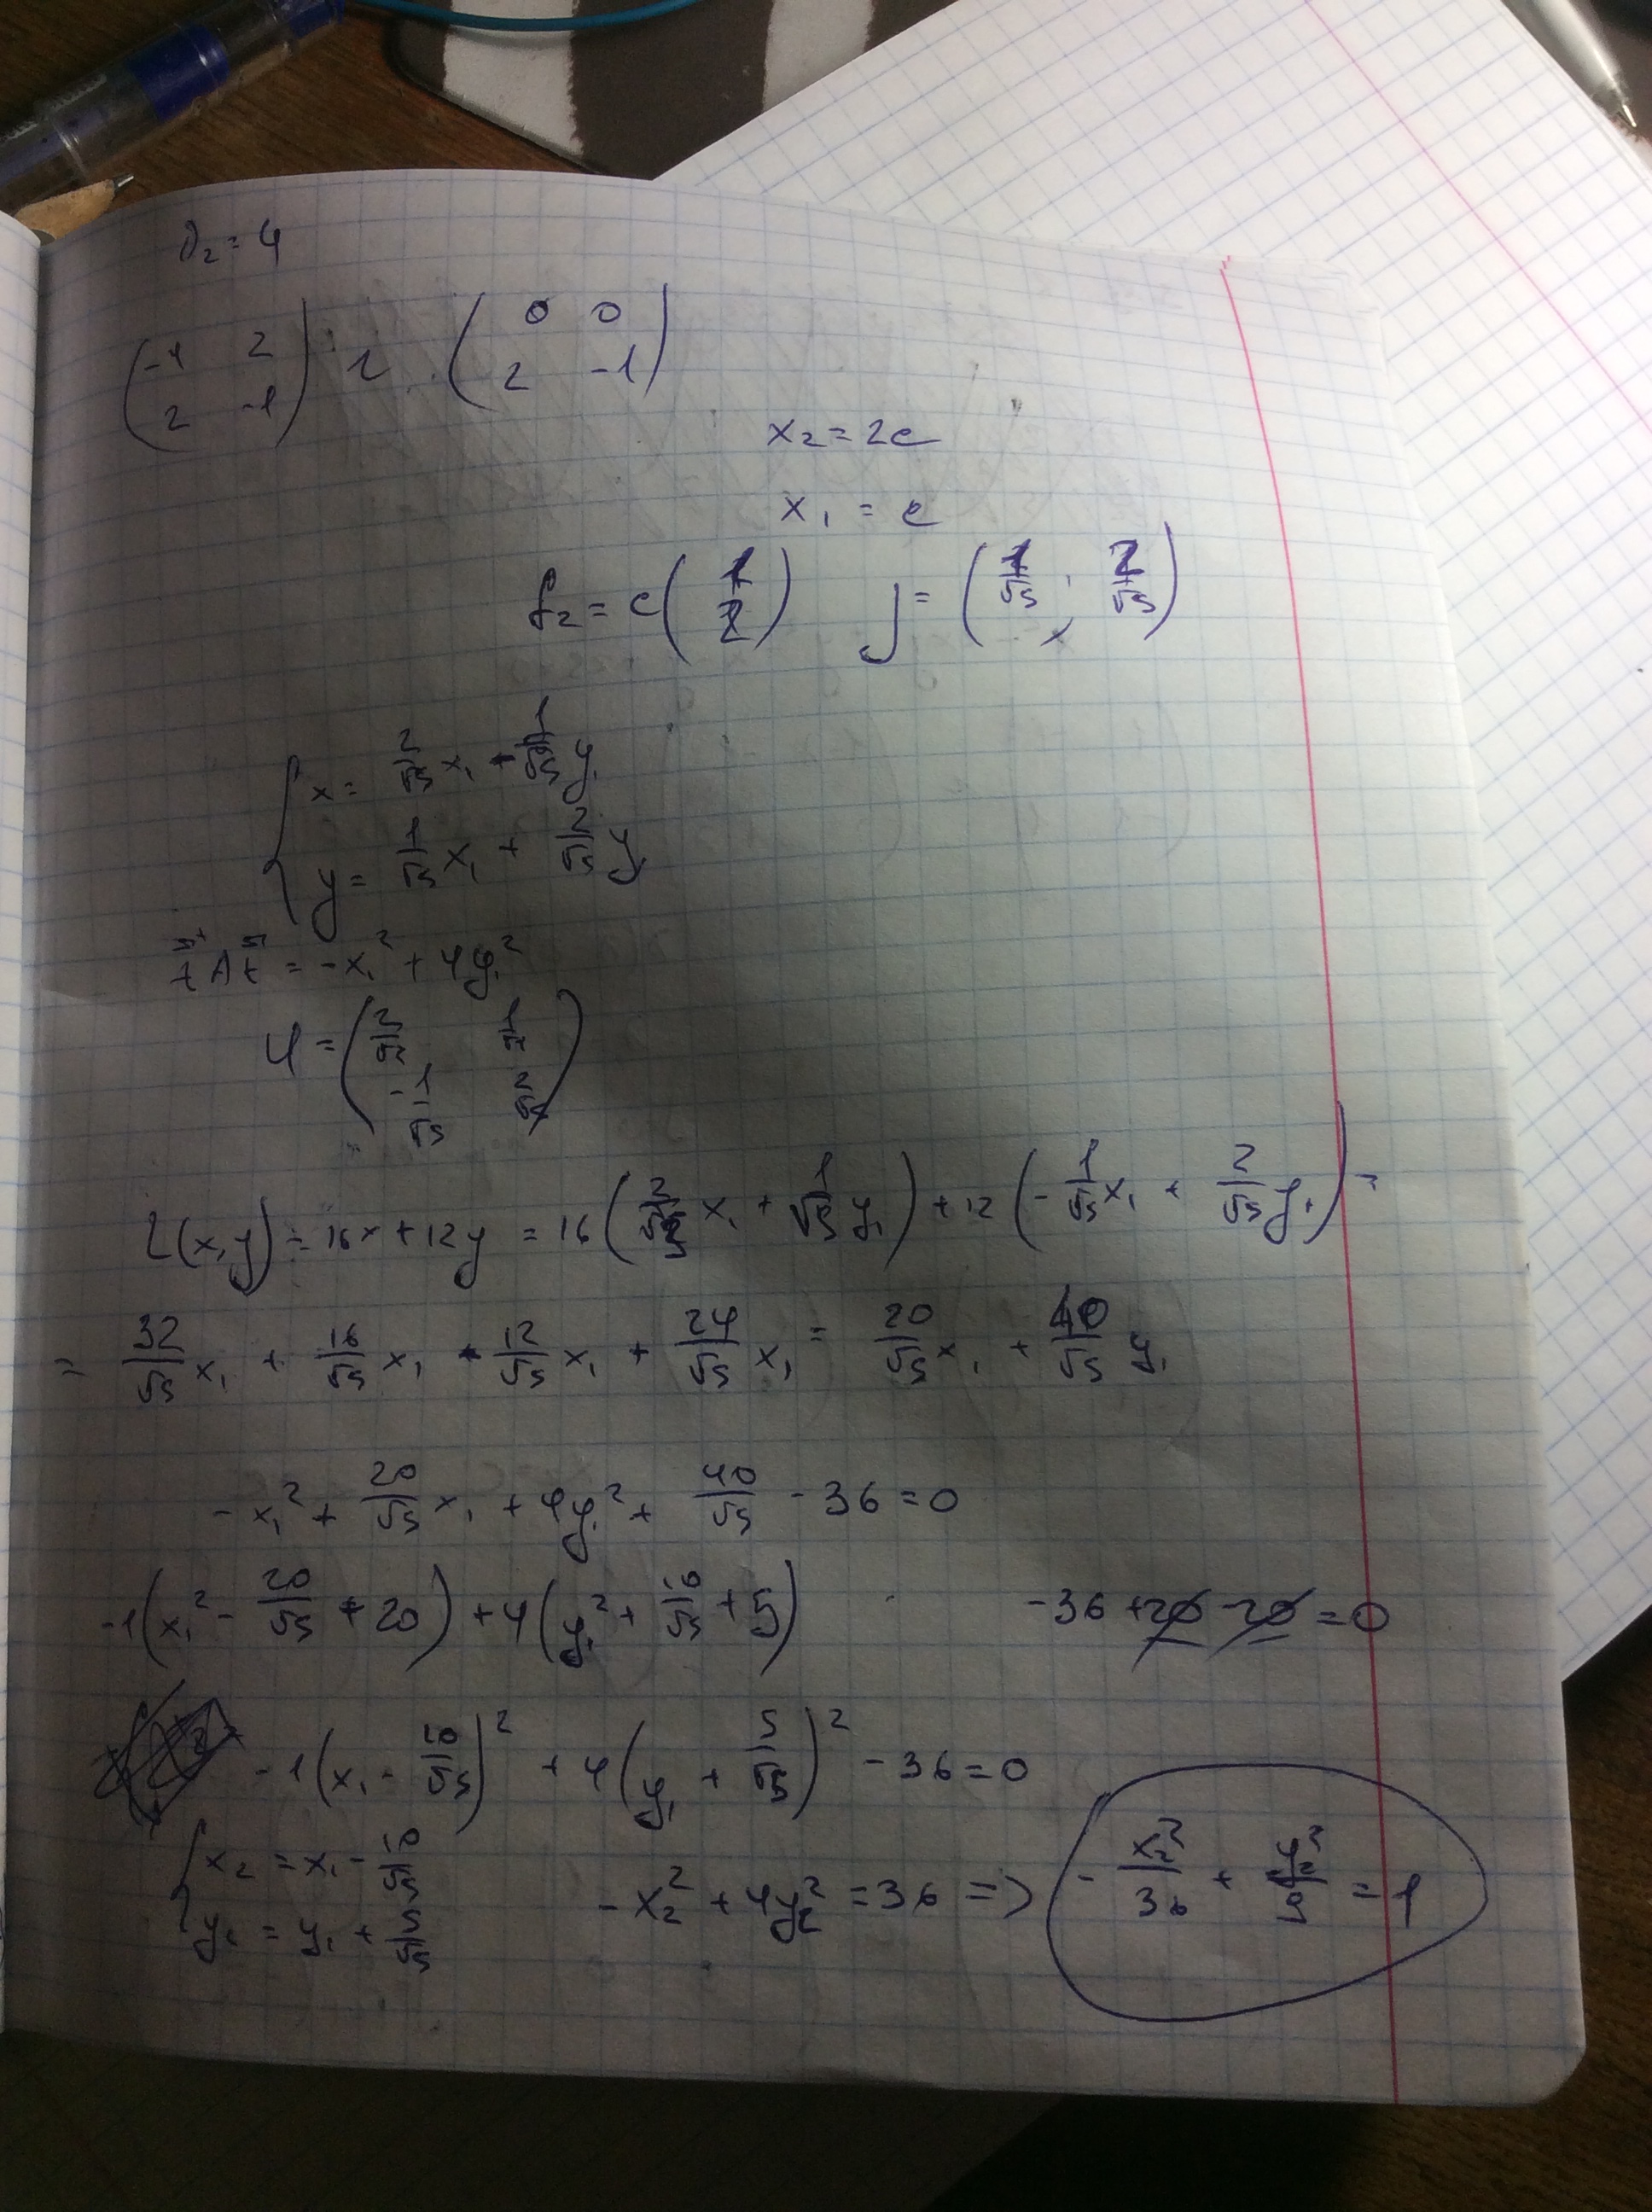 λ₂ = 4
(-4 2; 2 -1) ~ (0 0; 2 -1)
x₂ = 2c
x₁ = c
f₂ = c(1; 2) j = (1/√5; 2/√5)
{ x = 2/√5 x₁ + 1/√5 y₁
y = 1/√5 x₁ + 2/√5 y₁
= -x₁² + 4y₁²
U = (2/√5 1/√5; -1/√5 2/√5)
L(x,y) = 16x + 12y = 16(2/√5 x₁ + 1/√5 y₁) + 12(-1/√5 x₁ + 2/√5 y₁) =
= 32/√5 x₁ + 16/√5 x₁ - 12/√5 x₁ + 24/√5 x₁ = 20/√5 x₁ + 40/√5 y₁
-x₁² + 20/√5 x₁ + 4y₁² + 40/√5 - 36 = 0
-1(x₁² - 20/√5 + 20) + 4(y₁² + 10/√5 + 5) -36 +20 -20 = 0
-1(x₁ - 10/√5)² + 4(y₁ + 5/√5)² - 36 = 0
{ x₂ = x₁ - 10/√5
y₂ = y₁ + 5/√5
-x₂² + 4y₂² = 36 => -x₂²/36 + y₂²/9 = 1